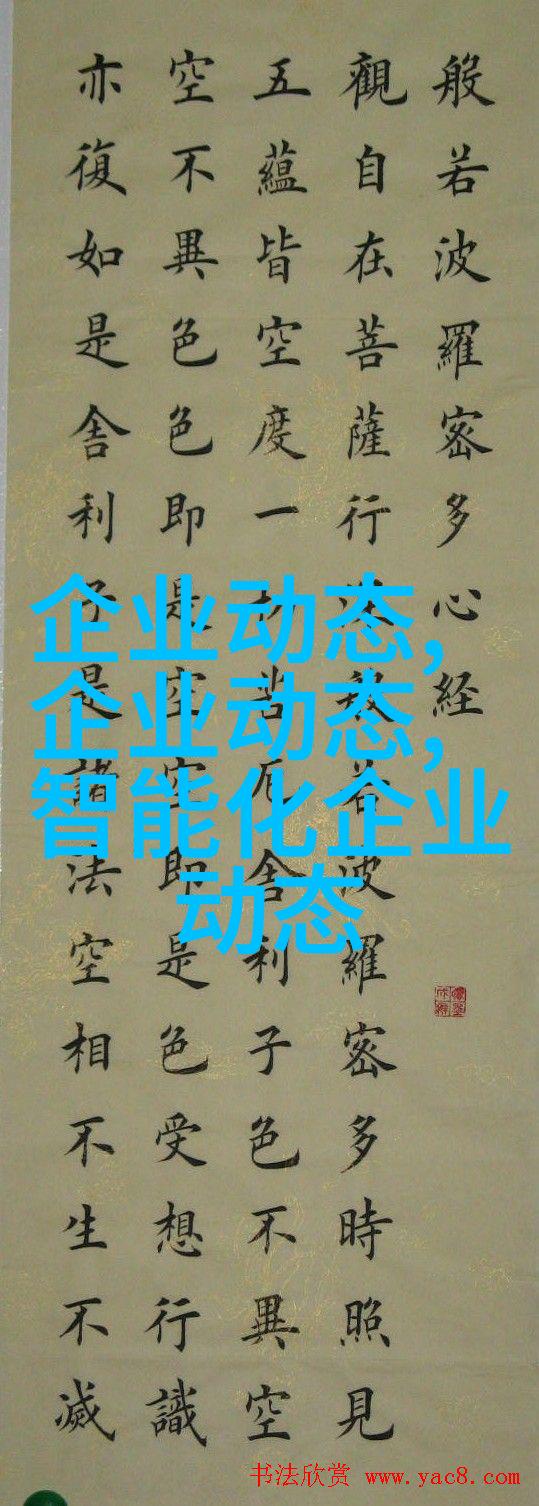 般若波羅密多心経
觀自在菩薩行深般若波羅密多時照見
五蘊皆空度一切苦厄舍利子色不異空
空不異色色即是空空即是色受想行識
亦復如是舍利子是諸法空相不生不滅
企业动态,
企业动态,
智能化企业
动态
书法欣赏 www.yac8.com